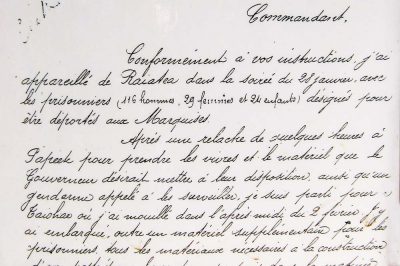 Commandant,
Conformément à vos instructions, j'ai
appareillé de Raiatea dans la soirée du 28 janvier, avec
les prisonniers (116 hommes, 29 femmes et 24 enfants) désignés pour
être déportés aux Marquises
Après une relache de quelques heures à
Papeete pour prendre les vivres et le matériel que le
Gouverneur désirait mettre à leur disposition, ainsi qu'un
gendarme appelé à les surveiller, je suis parti pour
Taiohae où j'ai mouillé dans l'après midi du 2 février. J'y
ai embarqué, outre un matériel supplémentaire pour les
prisonniers, tous les matériaux nécessaires à la construction